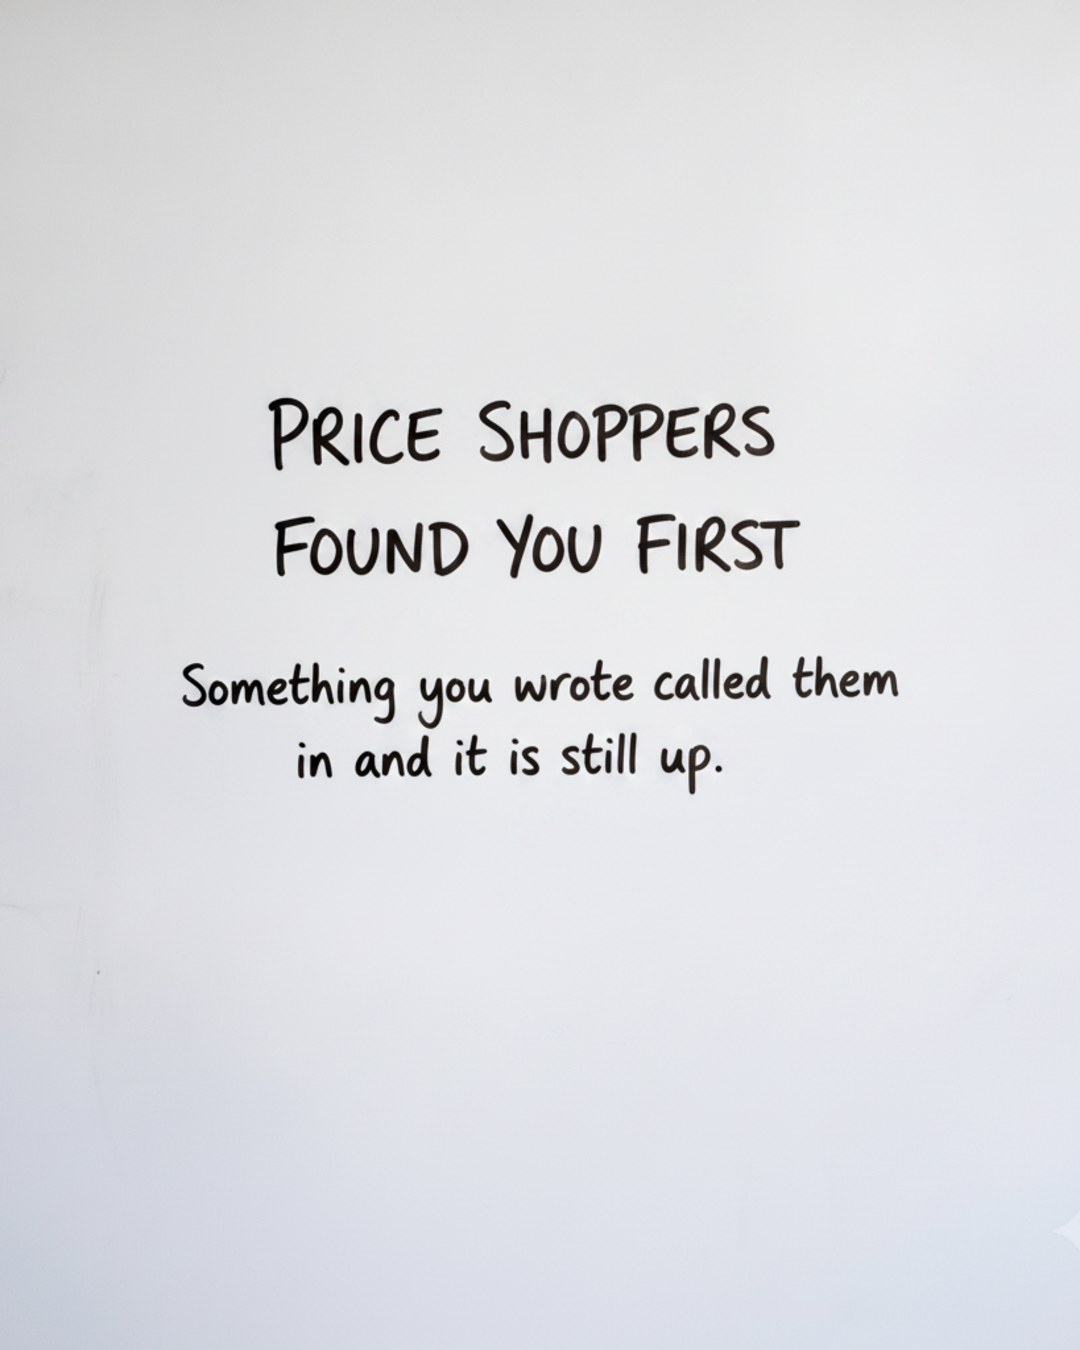 PRICE SHOPPERS
FOUND YOU FIRST
Something you wrote called them
in and it is still up.